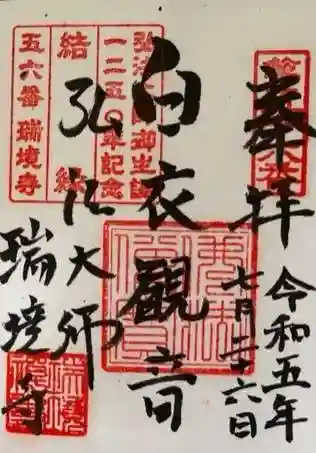 奉拝
令和五年
七月二十六日
白衣観音
弘法大師
瑞境寺
弘法大師御生誕
一二五〇年記念
結縁
五六番 瑞境寺